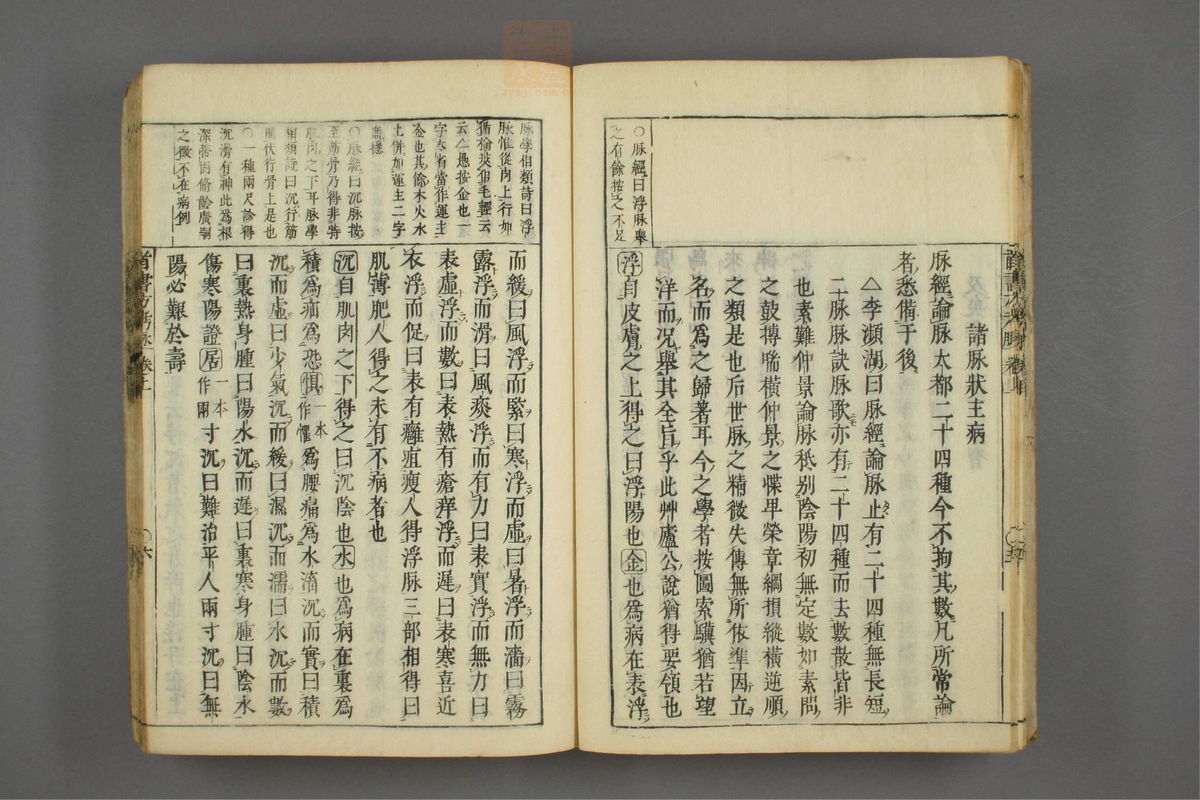 諸脉狀主病
脉經論脉大都二十四種今不拘其數凡所常論
者悉備于後
△李瀕湖曰脉經論脉止有二十四種無長短
二脉脉訣脉歌亦有二十四種而去數散皆非
也素難仲景論脉秪别陰陽初無定數如素問
之鼓摶喘橫仲景之惵卑榮章綱損縱橫逆順
之類是也后世脉之精微失傳無所依準因立
名而爲之歸著耳今之學者按圖索驥猶若望
洋而况舉其全旨乎此艸廬公說猶得要領也
浮自皮膚之上得之曰浮陽也金也爲病在表浮
○脉經曰浮脉舉
之有餘按之不足
而緩曰風浮而緊曰寒浮而虛曰暑浮而濇曰霧
露浮而滑曰風痰浮而有力曰表實浮而無力曰
表虛浮而數曰表熱有瘡痒浮而遲曰表寒喜近
衣浮而促曰表有癰疽瘦人得浮脉三部相得曰
肌薄肥人得之未有不病者也
沉自肌肉之下得之曰沉陰也水也爲病在裏爲
積爲疝爲恐惧一本作懼爲腰痛爲水滀沉而實曰積
沉而虛曰少氣沉而緩曰濕沉而濡曰水沉而數
曰裏熱身腫曰陽水沉而遲曰裏寒身腫曰陰水
傷寒陽證居一本作兩寸沉曰難治平人兩寸沉曰無
陽必艱於壽
脉學伯類詩曰浮
脉惟從肉上行如
循榆莢似毛輕云
云△愚按金也一
字太省當作運主
金也其餘木火水
土併加運主二字
○脉經曰沉脉按
至筋骨乃得非特
肌肉之下耳脉學
相類詩曰沉行筋
間伏行骨上是也
○一種兩尺診得
沉滑有神此爲根
之徵不在病例